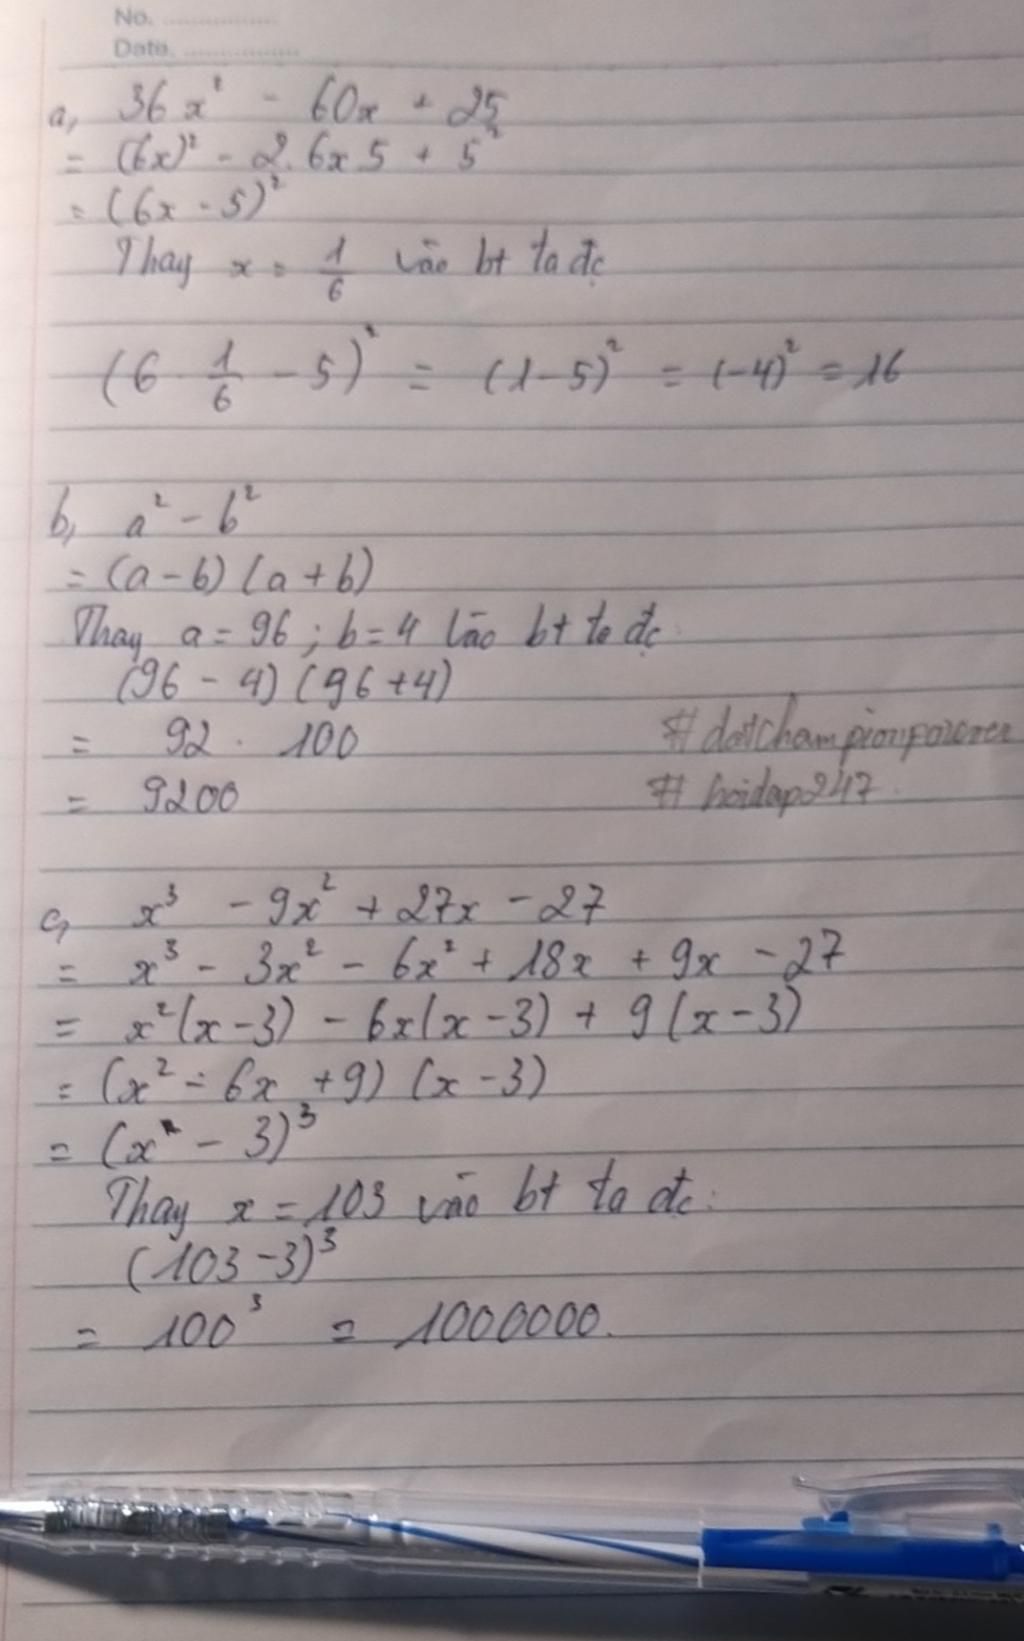 No. ................
Date. ................
a, 36x² - 60x + 25
= (6x)² - 2. 6x 5 + 5²
= (6x - 5)²
Thay x = 1/6 vào bt ta đc
(6 · 1/6 - 5)² = (1-5)² = (-4)² = 16
b, a² - b²
= (a - b) (a + b)
Thay a = 96 ; b = 4 vào bt ta đc
(96 - 4) (96 + 4)
= 92 · 100
= 9200
# hoidap247
c, x³ - 9x² + 27x - 27
= x³ - 3x² - 6x² + 18x + 9x - 27
= x²(x - 3) - 6x(x - 3) + 9 (x - 3)
= (x² - 6x + 9) (x - 3)
= (x - 3)³
Thay x = 103 vào bt ta đc :
(103 - 3)³
= 100³ = 1000000.